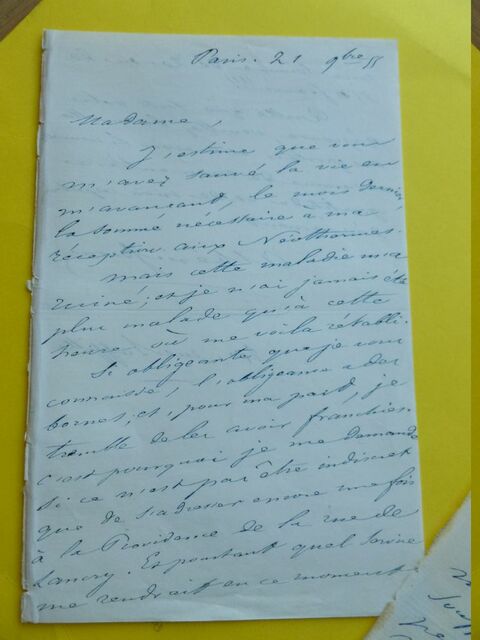 Paris. 21 9bre 55
Madame,
J'estime que vous
m'avez sauvé la vie en
m'avançant, le mois dernier,
la somme nécessaire à ma
réception aux Néothermes.
mais cette maladie m'a
ruiné; et je n'ai jamais été
plus malade qu'à cette
heure où me voilà rétabli.
Si obligeante que je vous
connaisse, l'obligeance a des
bornes, et, pour ma part, je
tremble de les avoir franchies.
c'est pourquoi je me demande
si ce n'est pas être indiscret
que de s'adresser encore une fois
à la Providence de la rue de
Lancry. Et pourtant quel service
me rendrait en ce moment